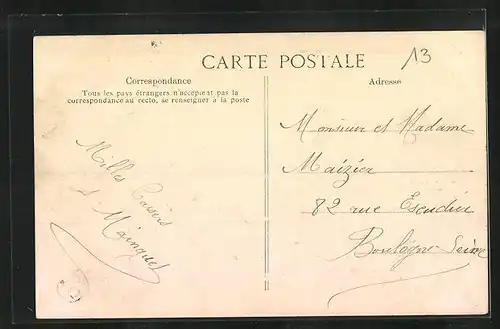 CARTE POSTALE
13
Correspondance
Tous les pays étrangers n'acceptent pas la
correspondance au recto, se renseigner à la poste
Milles Baisers
Adresse
Monsieur et Madame
Maizier
82 rue Escudier
Boulogne Seine